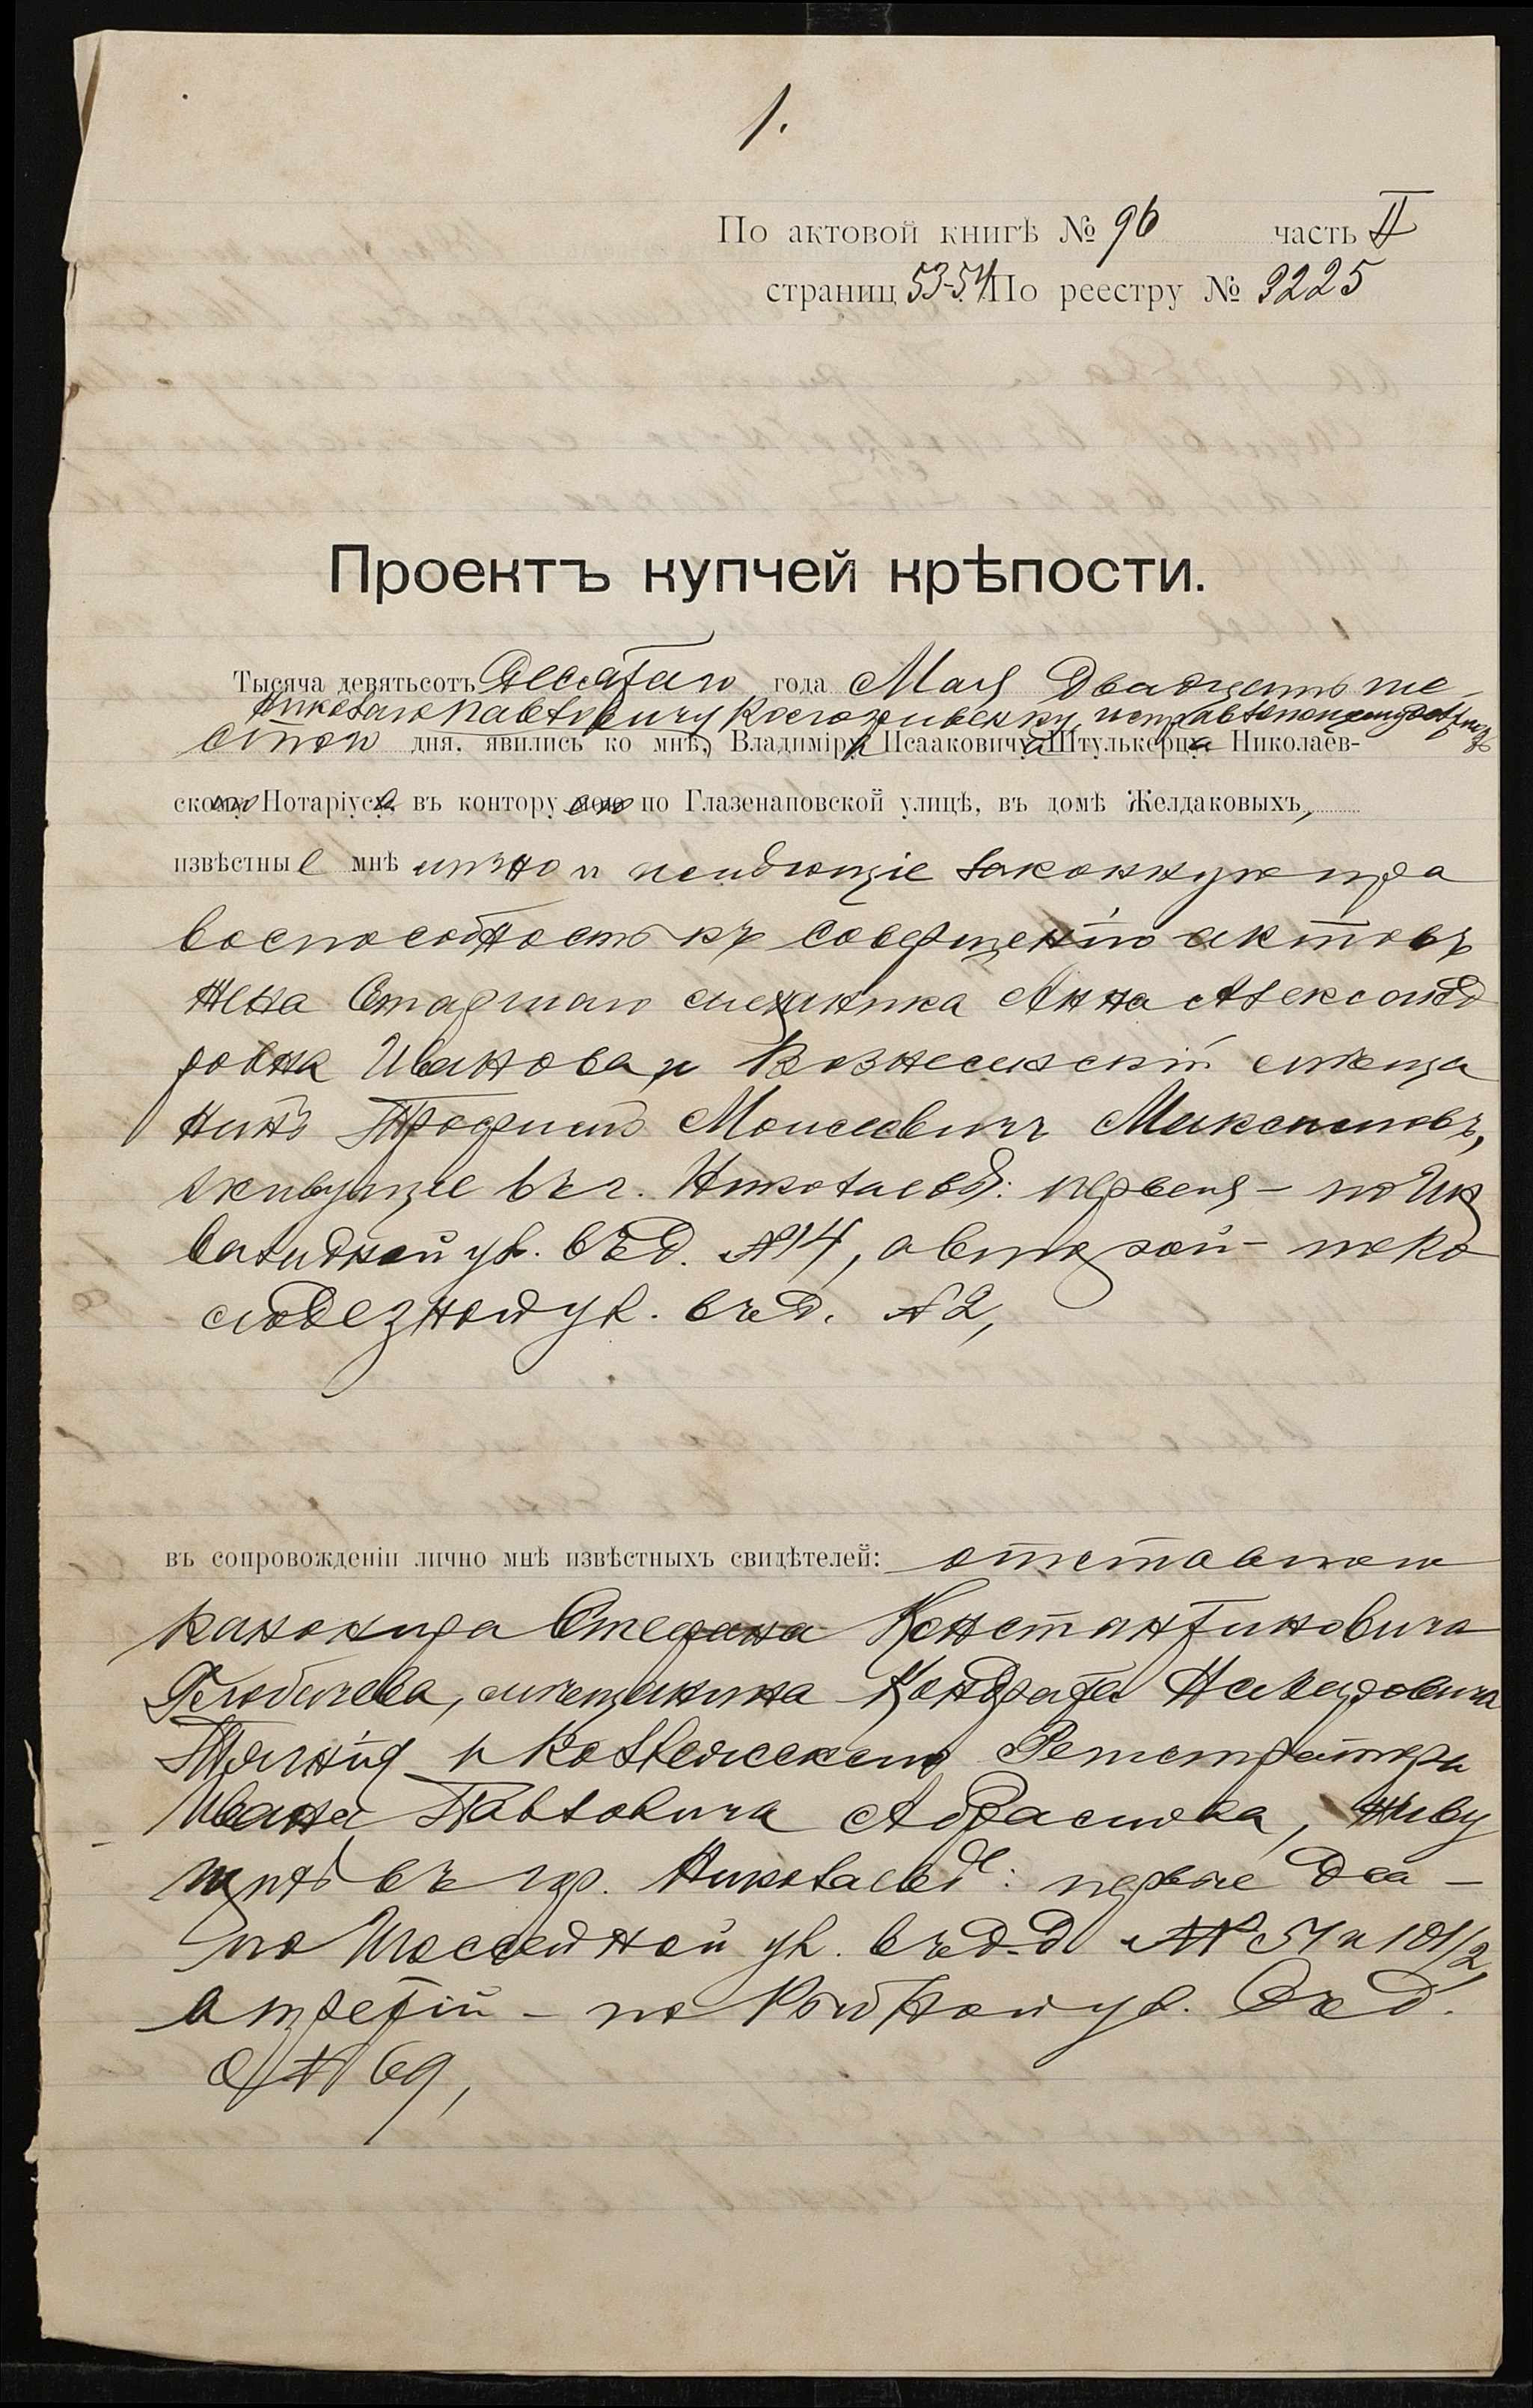 1.
По актовой книгѣ № 96 часть II
страниц 53-54 По реестру № 3225
Проектъ купчей крѣпости.
Тысяча девятьсотъ Десятаго года Мая Двадцать ше-
Николаю Павловичу исправляющему долж
стого дня, явились ко мнѣ, Владиміру Исааковича Штулькерца Николаев-
скаго Нотаріуса, въ контору его по Глазенаповской улицѣ, въ домѣ Желдаковыхъ,
извѣстные мнѣ лично и имѣющіе законную пра
воспособность къ совершенію актовъ
жена Старшаго механика Анна Александ
ровна Иванова и Вознесенскій мѣща
нинъ Трофимъ Моисеевичъ Максимовъ,
живущіе въ г. Николаевѣ: первая - по Ин
валидной ул. въ д. №14, а второй - по Ко
лодезной ул. въ д. № 2,
въ сопровожденіи лично мнѣ извѣстныхъ свидѣтелей: отставного
канонира Степана Константиновича
мѣщанина Кондрата Назаровича
и Коллежскаго Регистратора
Ивана Павловича живу
щихъ въ гор. Николаевѣ: первые два -
по Шоссейной ул. въ д.д. №№ 51 и 101/2,
а третій - по ул. въ д.
№ 69,